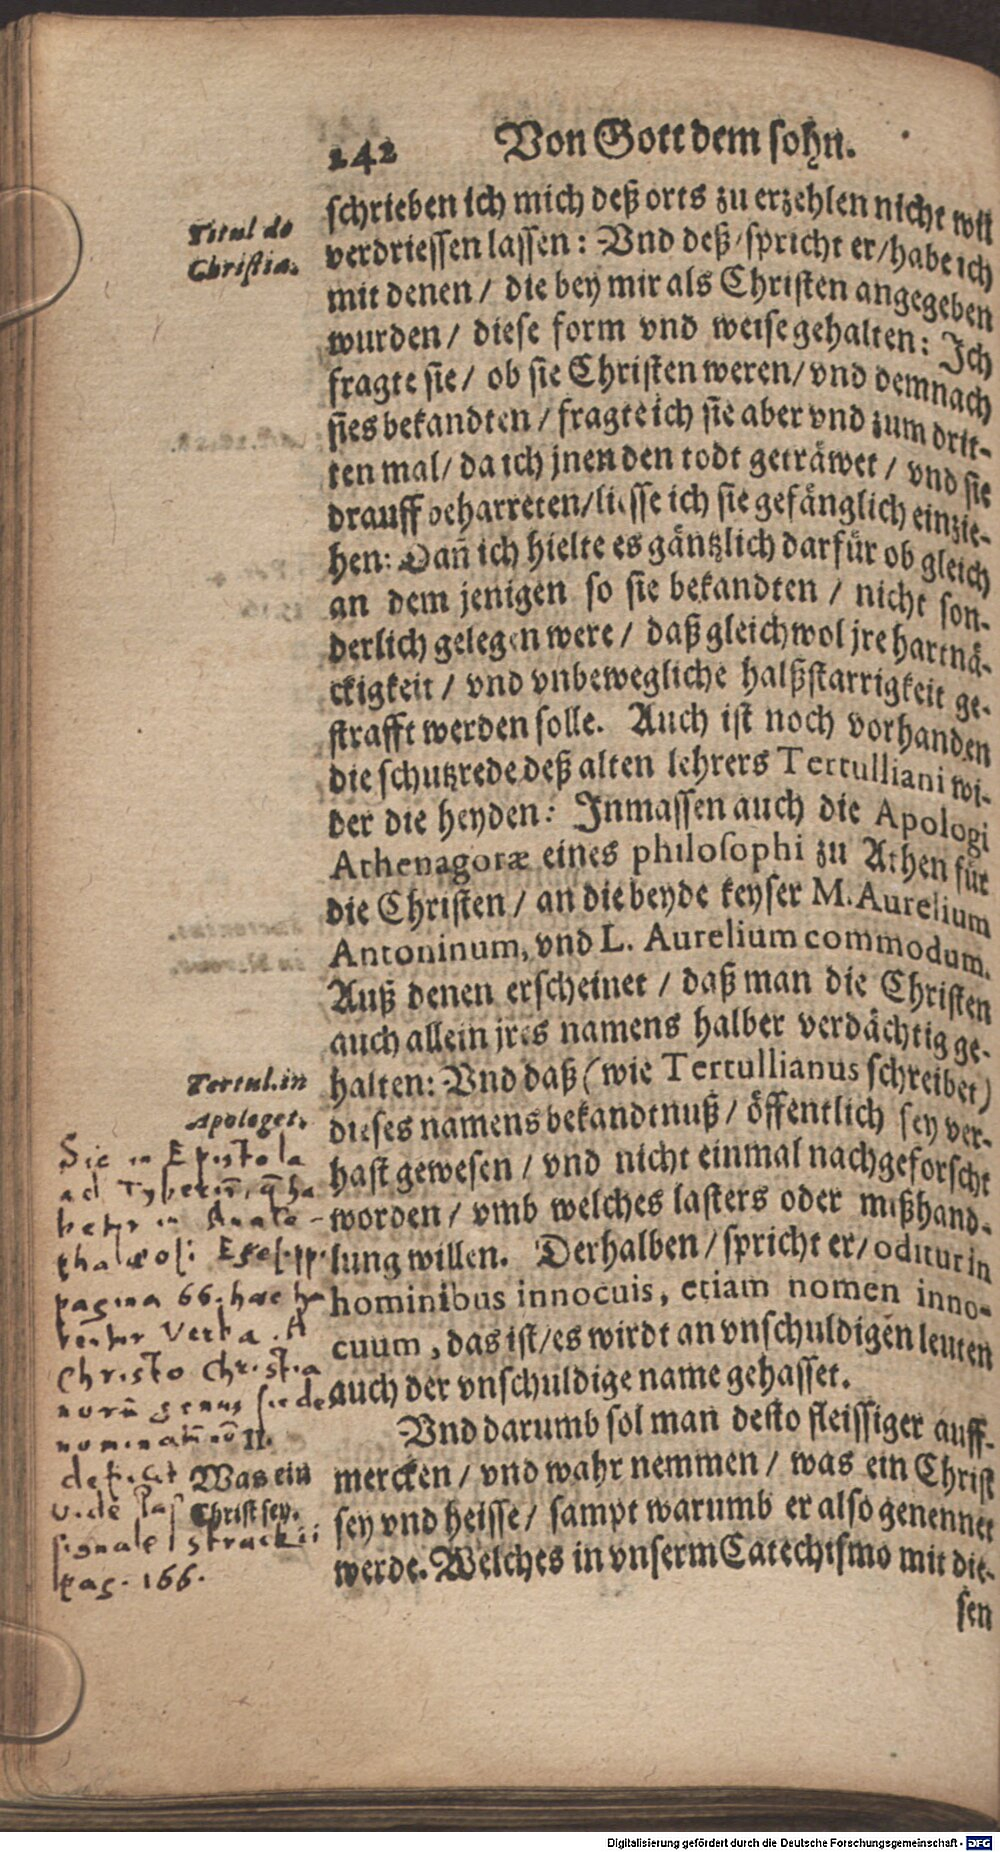 242 Von Gott dem sohn.
Titul de
Christia.
schrieben ich mich deß orts zu erzehlen nicht wil
verdriessen lassen: Vnd deß/spricht er/habe ich
mit denen / die bey mir als Christen angegeben
wurden / diese form vnd weise gehalten: Ich
fragte sie / ob sie Christen weren/ vnd demnach
sies bekandten / fragte ich sie aber vnd zum drit-
ten mal/ da ich jnen den todt geträwet / vnd sie
drauff beharreten/liesse ich sie gefänglich einzie-
hen: Dañ ich hielte es gäntzlich darfür ob gleich
an dem jenigen so sie bekandten / nicht son-
derlich gelegen were / daß gleichwol jre hartnä-
ckigkeit / vnd vnbewegliche halßstarrigkeit ge-
strafft werden solle. Auch ist noch vorhanden
die schutzrede deß alten lehrers Tertulliani wi-
der die heyden: Inmassen auch die Apologi
Athenagoræ eines philosophi zu Athen für
die Christen / an die beyde keyser M. Aurelium
Antoninum, vnd L. Aurelium commodum.
Auß denen erscheinet / daß man die Christen
auch allein jres namens halber verdächtig ge-
halten: Vnd daß (wie Tertullianus schreibet)
dieses namens bekandtnuß / öffentlich sey ver-
hast gewesen / vnd nicht einmal nachgeforscht
worden / vmb welches lasters oder mißhand-
lung willen. Derhalben / spricht er/ oditur in
hominibus innocuis, etiam nomen inno-
cuum, das ist/es wirdt an vnschuldigen leuten
auch der vnschuldige name gehasset.
Tertul. in
Apologet.
Sic in Epistola
ad Tyberiũ, q̃ ha
betur in
pagina 66. haec ha
bentur Verba. A
Christo Christia
norũ genus sic de
nominatũ
II.
Was ein
Christ sey.
Vnd darumb sol man desto fleissiger auff-
mercken / vnd wahr nemmen / was ein Christ
sey vnd heisse / sampt warumb er also genennet
werde. Welches in vnserm Catechismo mit die-
sen
vide
Struckii
pag. 166.
Digitalisierung gefördert durch die Deutsche Forschungsgemeinschaft - DFG